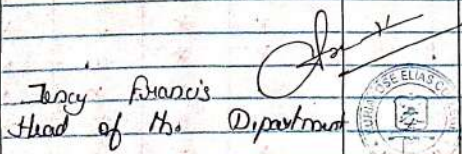 Jency Francis
Head of the Department
JOSE ELIAS